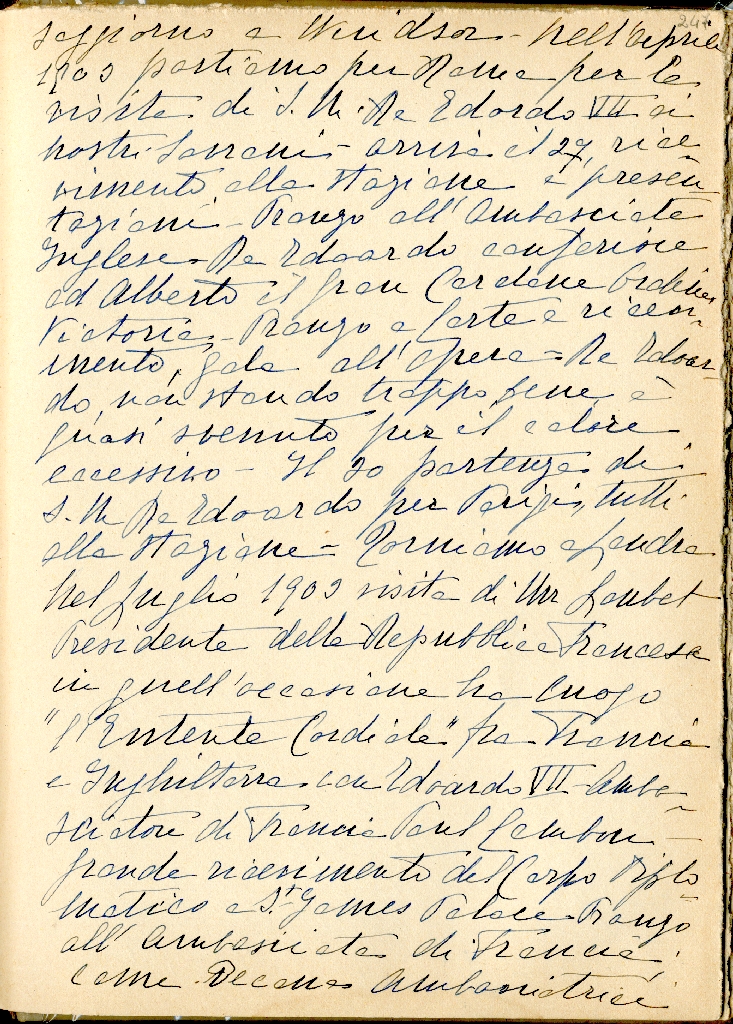 247
soggiorno a Windsor - nell'aprile
1903 partiamo per Roma per la
visita di S. M. Re Edoardo VII ai
nostri Sovrani - arriva il 27, rice-
vimento alla stazione e presen-
tazioni - Pranzo all'Ambasciata
Inglese - Re Edoardo conferisce
ad Alberto il Gran Cordone Ordine
Victoria - Pranzo a Corte e ricevi-
mento, gala all'opera = Re Edoar-
do, non stando troppo bene, è
quasi svenuto per il calore
eccessivo - Il 30 partenza di
S. M. Re Edoardo per Parigi, tutti
alla stazione = Torniamo a Londra
Nel luglio 1903 visita di Mr Loubet
Presidente della Repubblica Francese
in quell'occasione ha luogo
"l'Entente Cordiale" fra Francia
e Inghilterra con Edoardo VII - Amba-
sciatore di Francia Paul Cambon -
grande ricevimento del Corpo Diplo-
matico a St James Palace - Pranzo
all'Ambasciata di Francia,
come Decana Ambasciatrici